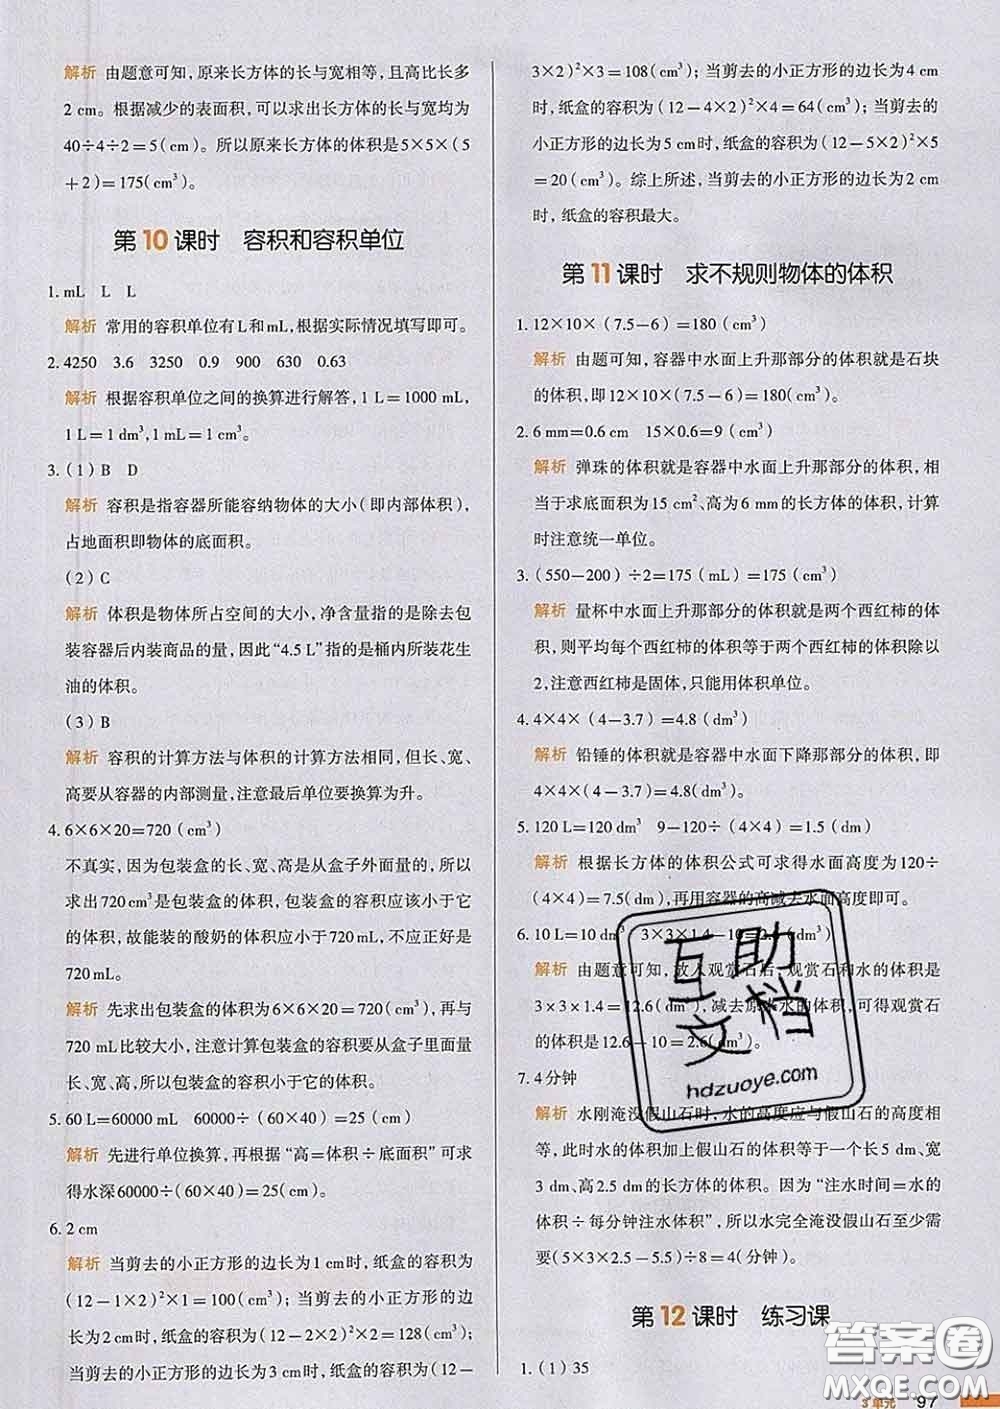 解析 由题意可知，原来长方体的长与宽相等，且高比长多
2 cm。根据减少的表面积，可以求出长方体的长与宽均为
40÷4÷2=5(cm)。所以原来长方体的体积是5×5×(5
+2)=175(cm³)。
第10课时 容积和容积单位
1. mL L L
解析 常用的容积单位有L和mL，根据实际情况填写即可。
2. 4250 3.6 3250 0.9 900 630 0.63
解析 根据容积单位之间的换算进行解答，1 L=1000 mL，
1 L=1 dm³，1 mL=1 cm³。
3. (1) B D
解析 容积是指容器所能容纳物体的大小(即内部体积)，
占地面积即物体的底面积。
(2) C
解析 体积是物体所占空间的大小，净含量指的是除去包
装容器后内装商品的量，因此“4.5 L”指的是桶内所装花生
油的体积。
(3) B
解析 容积的计算方法与体积的计算方法相同，但长、宽、
高要从容器的内部测量，注意最后单位要换算为升。
4. 6×6×20=720(cm³)
不真实，因为包装盒的长、宽、高是从盒子外面量的，所以
求出720 cm³是包装盒的体积，包装盒的容积应该小于它
的体积，故能装的酸奶的体积应小于720 mL，不应正好是
720 mL。
解析 先求出包装盒的体积为6×6×20=720(cm³)，再与
720 mL比较大小，注意计算包装盒的容积要从盒子里面量
长、宽、高，所以包装盒的容积小于它的体积。
5. 60 L=60000 mL 60000÷(60×40)=25(cm)
解析 先进行单位换算，再根据“高=体积÷底面积”可求
得水深60000÷(60×40)=25(cm)。
6. 2 cm
解析 当剪去的小正方形的边长为1 cm时，纸盒的容积为
(12-1×2)²×1=100(cm³)；当剪去的小正方形的边长
为2 cm时，纸盒的容积为(12-2×2)²×2=128(cm³)；
当剪去的小正方形的边长为3 cm时，纸盒的容积为(12-
3×2)²×3=108(cm³)；当剪去的小正方形的边长为4 cm
时，纸盒的容积为(12-4×2)²×4=64(cm³)；当剪去的
小正方形的边长为5 cm时，纸盒的容积为(12-5×2)²×5
=20(cm³)。综上所述，当剪去的小正方形的边长为2 cm
时，纸盒的容积最大。
第11课时 求不规则物体的体积
1. 12×10×(7.5-6)=180(cm³)
解析 由题可知，容器中水面上升那部分的体积就是石块
的体积，即12×10×(7.5-6)=180(cm³)。
2. 6 mm=0.6 cm 15×0.6=9(cm³)
解析 弹珠的体积就是容器中水面上升那部分的体积，相
当于求底面积为15 cm²、高为6 mm的长方体的体积，计算
时注意统一单位。
3. (550-200)÷2=175(mL)=175(cm³)
解析 量杯中水面上升那部分的体积就是两个西红柿的体
积，则平均每个西红柿的体积等于两个西红柿的体积除以
2，注意西红柿是固体，只能用体积单位。
4. 4×4×(4-3.7)=4.8(dm³)
解析 铅锤的体积就是容器中水面下降那部分的体积，即
4×4×(4-3.7)=4.8(dm³)。
5. 120 L=120 dm³ 9-120÷(4×4)=1.5(dm)
解析 根据长方体的体积公式可求得水面高度为120÷
(4×4)=7.5(dm)，再用容器的高减去水面高度即可。
6. 10 L=10 dm³ 3×3×1.4-10=2.6(dm³)
解析 由题意可知，放入观赏石后，观赏石和水的体积是
3×3×1.4=12.6(dm³)，减去原来水的体积，可得观赏石
的体积是12.6-10=2.6(dm³)。
7. 4分钟
解析 水刚淹没假山石时，水的高度应与假山石的高度相
等，此时水的体积加上假山石的体积等于一个长5 dm、宽
3 dm、高2.5 dm的长方体的体积。因为“注水时间=水的
体积÷每分钟注水体积”，所以水完全淹没假山石至少需要
(5×3×2.5-5.5)÷8=4(分钟)。
第12课时 练习课
1. (1) 35
3单元 97
互助
文档
hdzuoye.com
答案圈
MXQE.COM